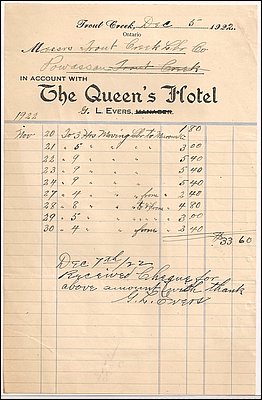 Trout Creek, Dec 5 1922
Ontario
Messrs Trout Creek Lbr Co
Powassan Trout Creek
IN ACCOUNT WITH
The Queen's Hotel
G. L. EVERS, MANAGER.
1922
Nov 20 To 3 Hrs Moving Lbr to 1 80
21 " 5 " " " " 3 00
22 " 9 " " " " 5 40
23 " 9 " " " " 5 40
24 " 9 " " " " 5 40
27 " 4 " " " from " 2 40
28 " 8 " " " " 4 80
29 " 5 " " " " 3 00
30 " 4 " " from " 2 40
33 60
Dec 7th/22
Received Cheque for
above amount with thanks
G. L. Evers